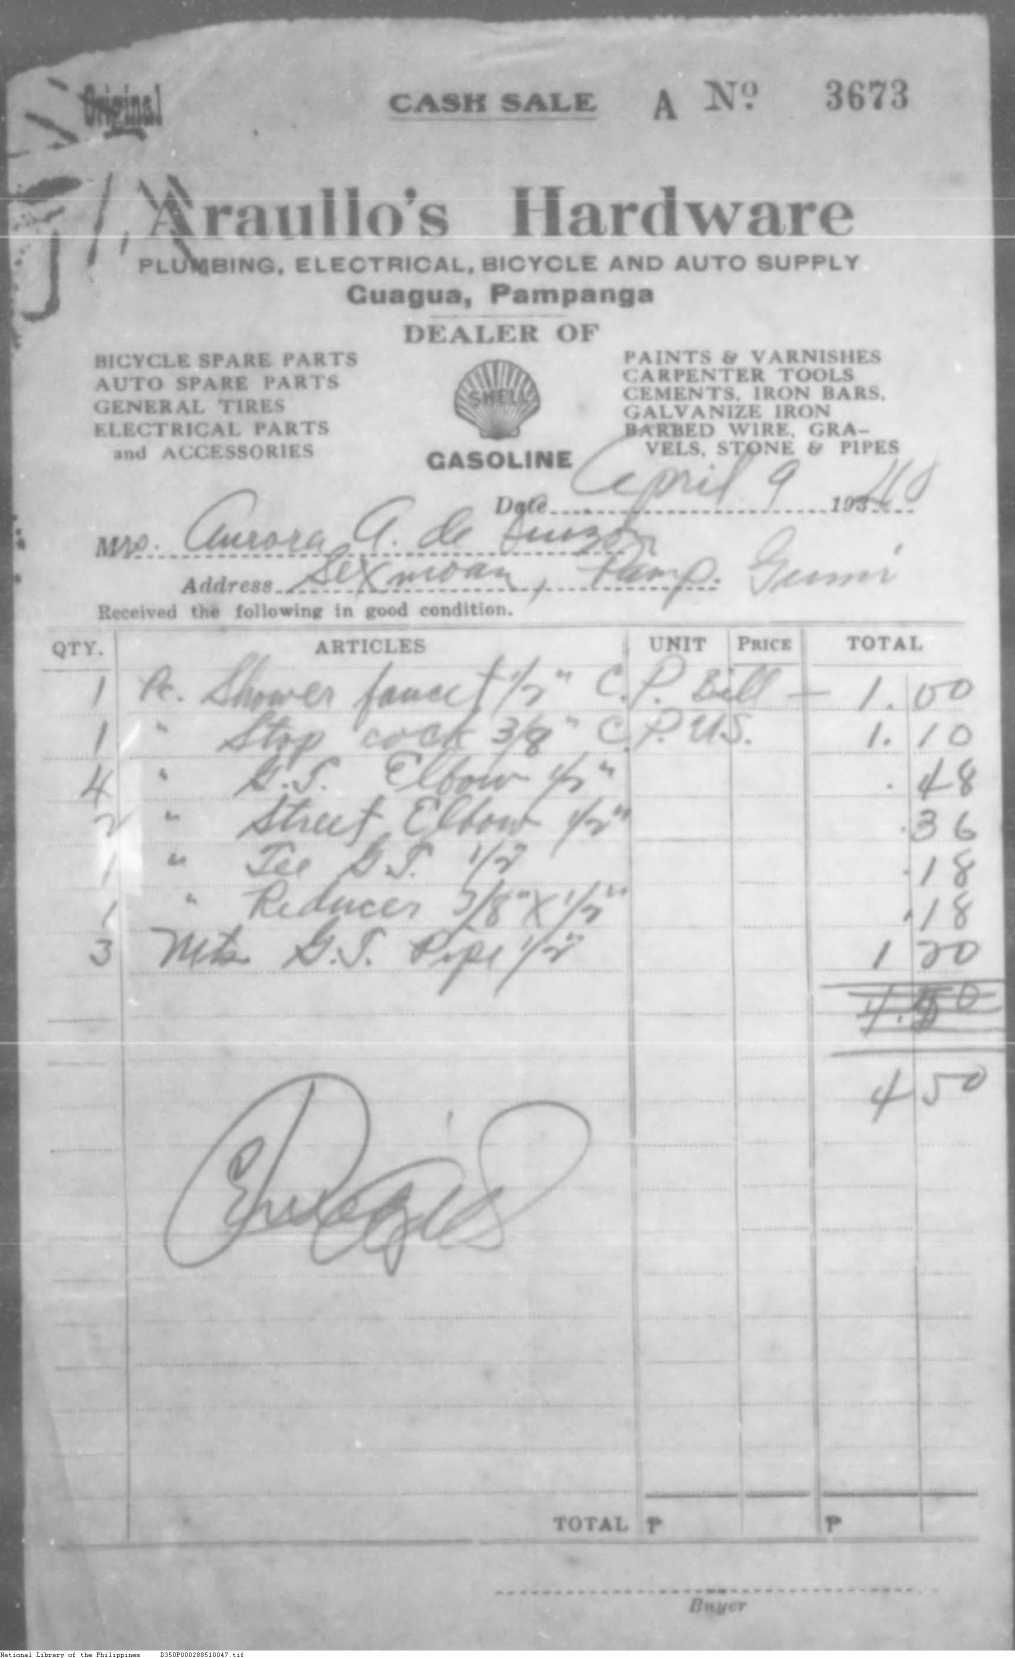 Original
CASH SALE A Nº 3673
Araullo's Hardware
PLUMBING, ELECTRICAL, BICYCLE AND AUTO SUPPLY
Guagua, Pampanga
DEALER OF
BICYCLE SPARE PARTS
AUTO SPARE PARTS
GENERAL TIRES
ELECTRICAL PARTS
and ACCESSORIES
SHELL
GASOLINE
PAINTS & VARNISHES
CARPENTER TOOLS
CEMENTS, IRON BARS,
GALVANIZE IRON
BARBED WIRE, GRA-
VELS, STONE & PIPES
Date April 9 193 40
Mrs. Aurora A. de
Address Sexmoan, Pamp.
Received the following in good condition.
QTY. ARTICLES UNIT PRICE TOTAL
1 Pc. Shower faucet 1/2" C.P. Bill — 1.00
1 " Stop cock 3/8" C.P. U.S. 1.10
4 " G.I. Elbow 1/2" .48
2 " Street Elbow 1/2" .36
1 " Tee G.I. 1/2" .18
1 " Reducer 3/8" X 1/2" .18
3 Mts. G.I. Pipe 1/2" 1 20
4 50
TOTAL ₱ ₱
Buyer
National Library of the Philippines D350P000288510047.tif